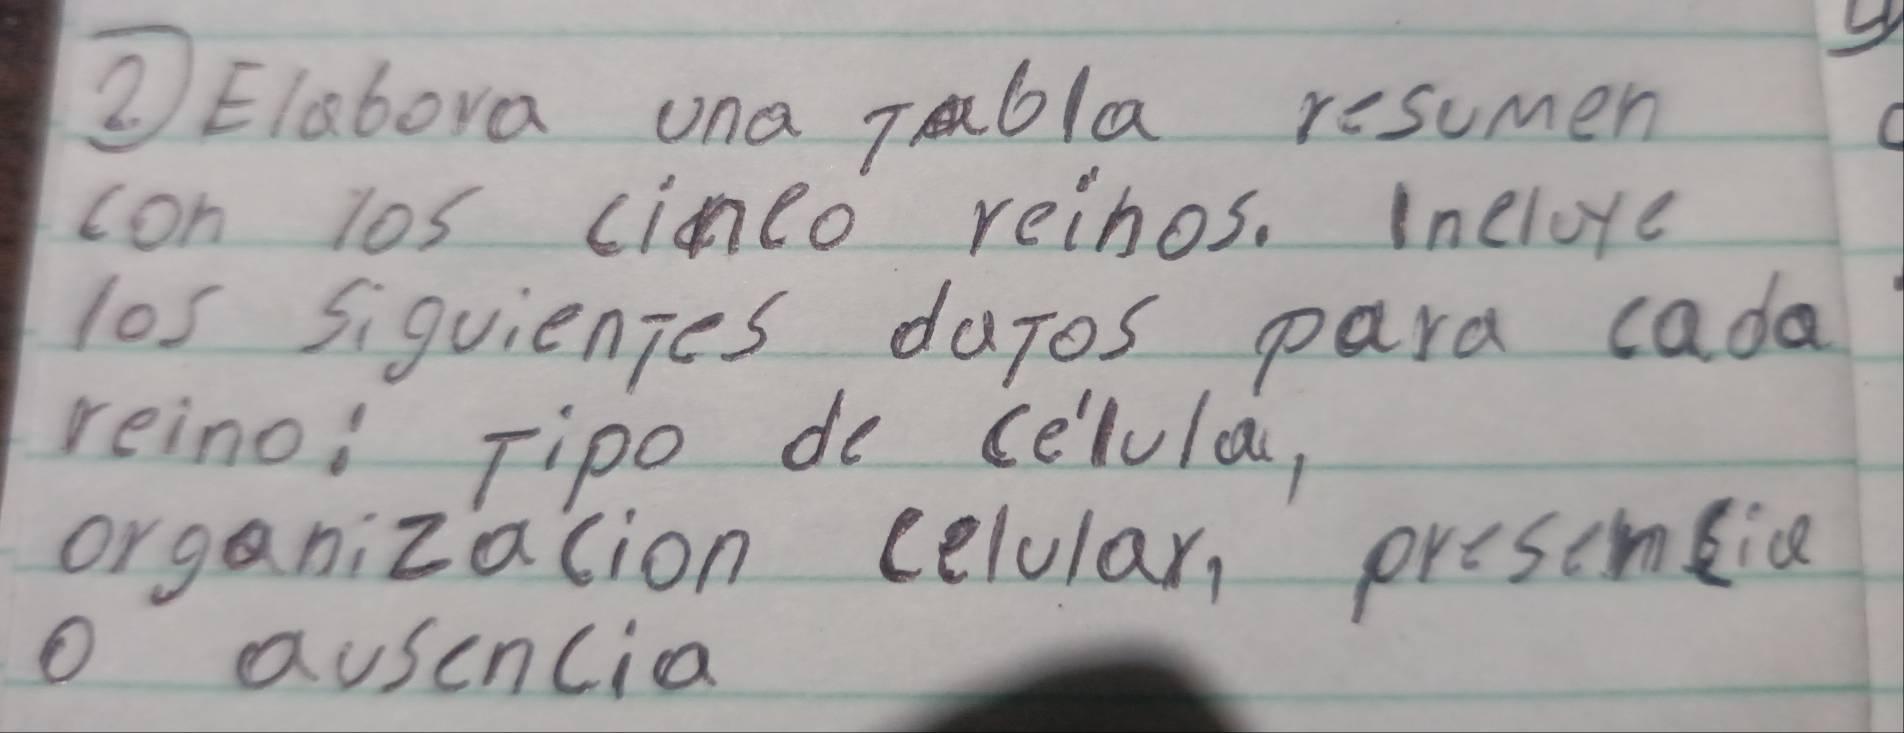 ② Elabora una Tabla resumen
con los cinco reinos. Incluye
los siguientes datos para cada
reino: Tipo de célula,
organizacion celular, presencia
o ausencia